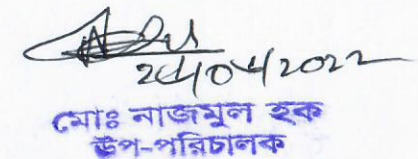 24/04/2022
মোঃ নাজমুল হক
উপ-পরিচালক